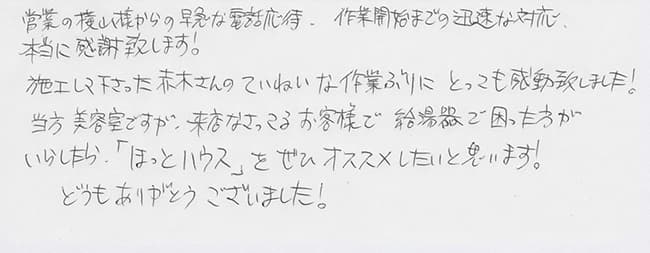 営業の横山様からの早急な電話応待、作業開始までの迅速な対応、
本当に感謝致します!
施工して下さった赤木さんのていねいな作業ぶりにとっても感動致しました!
当方美容室ですが、来店なさってるお客様で給湯器で困った方が
いらしたら、「ほっとハウス」をぜひオススメしたいと思います!
どうもありがとうございました!